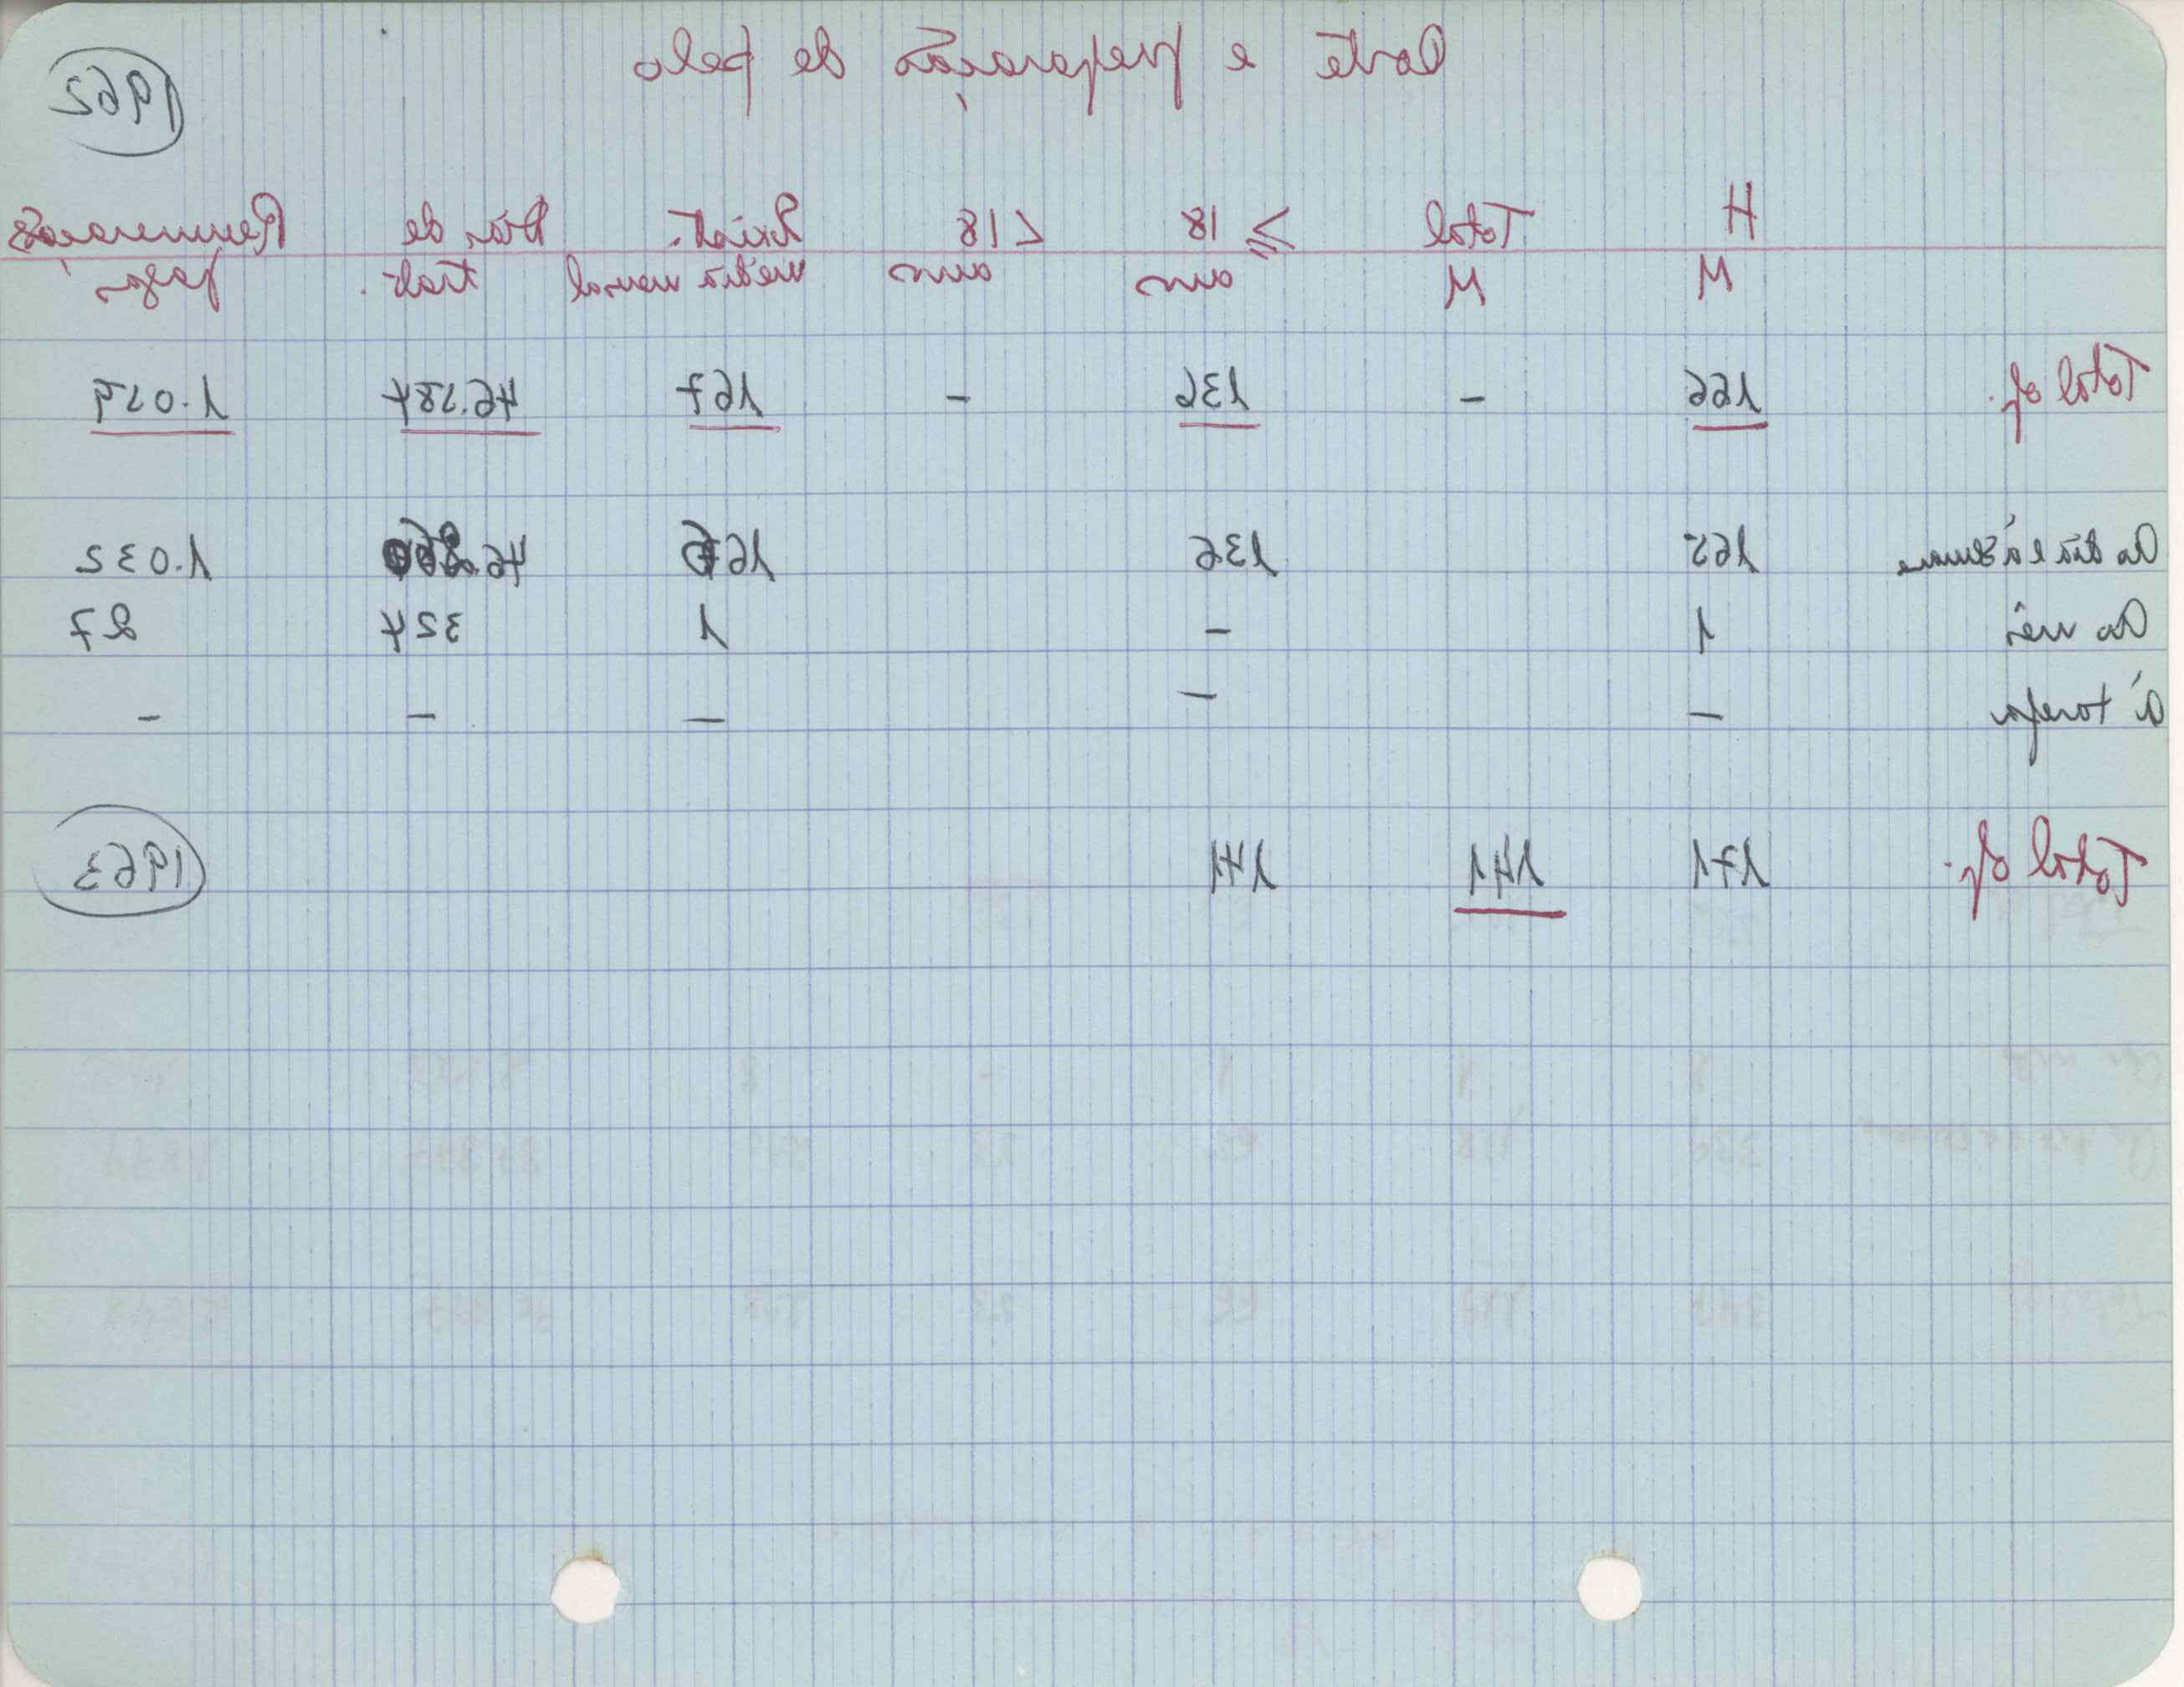 Corte e preparação de pelo 1962
H M Total M ≥ 18 anos < 18 anos Exist. média mensal Dias de trab. Remunerações pagas
Total of. 166 - 136 - 167 46.584 1.059
Ao dia e à semana 165 136 166 46.260 1.032
Ao mês 1 - 1 324 27
À tarefa - - - - -
Total of. 171 141 141 1963